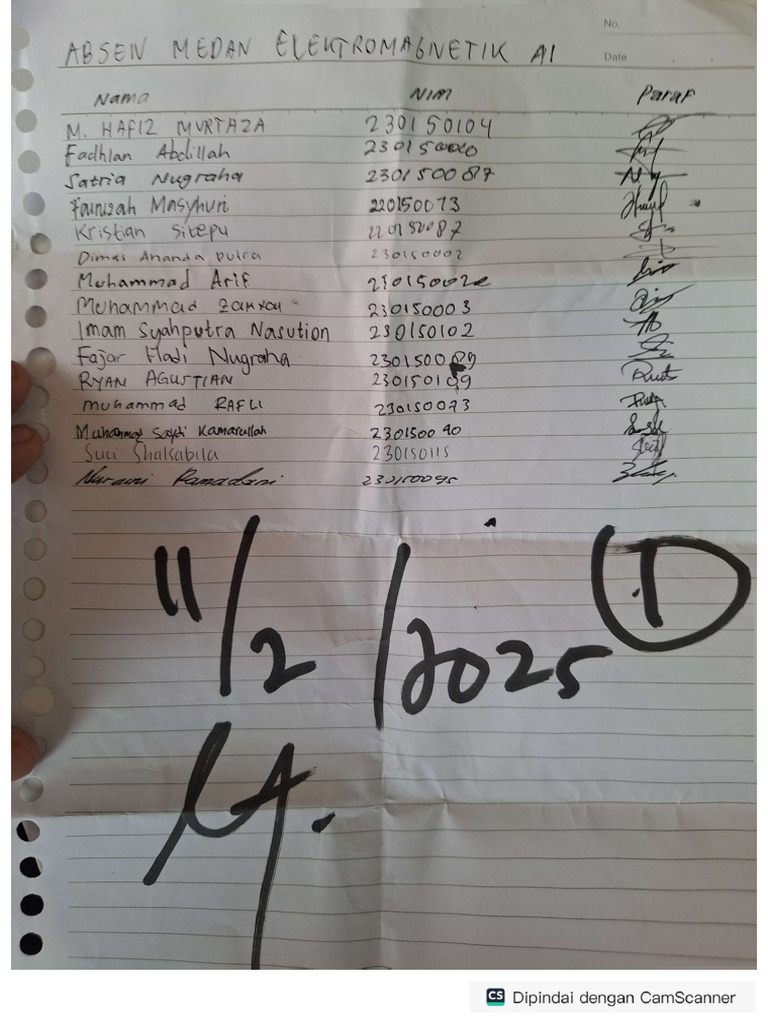 No.
ABSEN MEDAN ELEKTROMAGNETIK A1
Date
Nama NIM Paraf
M. HAFIZ MURTAZA 230150104
Fadhlan Abdillah 230150060
Satria Nugraha 230150087
Masyhuri 220150073
Kristian Sitepu 220150087
Dimas Ananda putra 230150002
Muhammad Arif
Muhammad 230150003
Imam Syahputra Nasution 230150102
Fajar Hadi Nugraha
RYAN AGUSTIAN 230150109
muhammad RAFLI 230150073
Muhammad Saydi Kamarullah 230150090
Suci Shalsabila 230150115
Nuraini Ramadani 230150095
11/2/2025 1
CS Dipindai dengan CamScanner